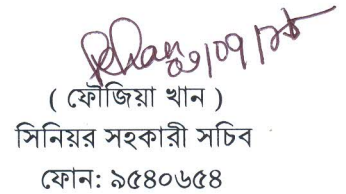 ০৩/০৭/১৮
( ফৌজিয়া খান )
সিনিয়র সহকারী সচিব
ফোন: ৯৫৪০৬৫৪